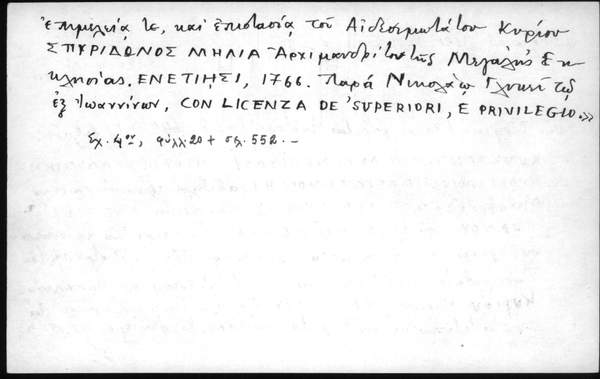 ἐπιμελείᾳ τε, καὶ ἐπιστασίᾳ τοῦ Αἰδεσιμωτάτου Κυρίου
ΣΠΥΡΙΔΩΝΟΣ ΜΗΛΙΑ Ἀρχιμανδρίτου τῆς Μεγάλης Ἐκ-
κλησίας. ΕΝΕΤΙΗΣΙ, 1766. Παρὰ Νικολάῳ Γλυκεῖ τῷ
ἐξ Ἰωαννίνων, CON LICENZA DE 'SUPERIORI, E PRIVILEGIO.»
Σχ. 4ον, φύλλ. 20 + σελ. 552. –